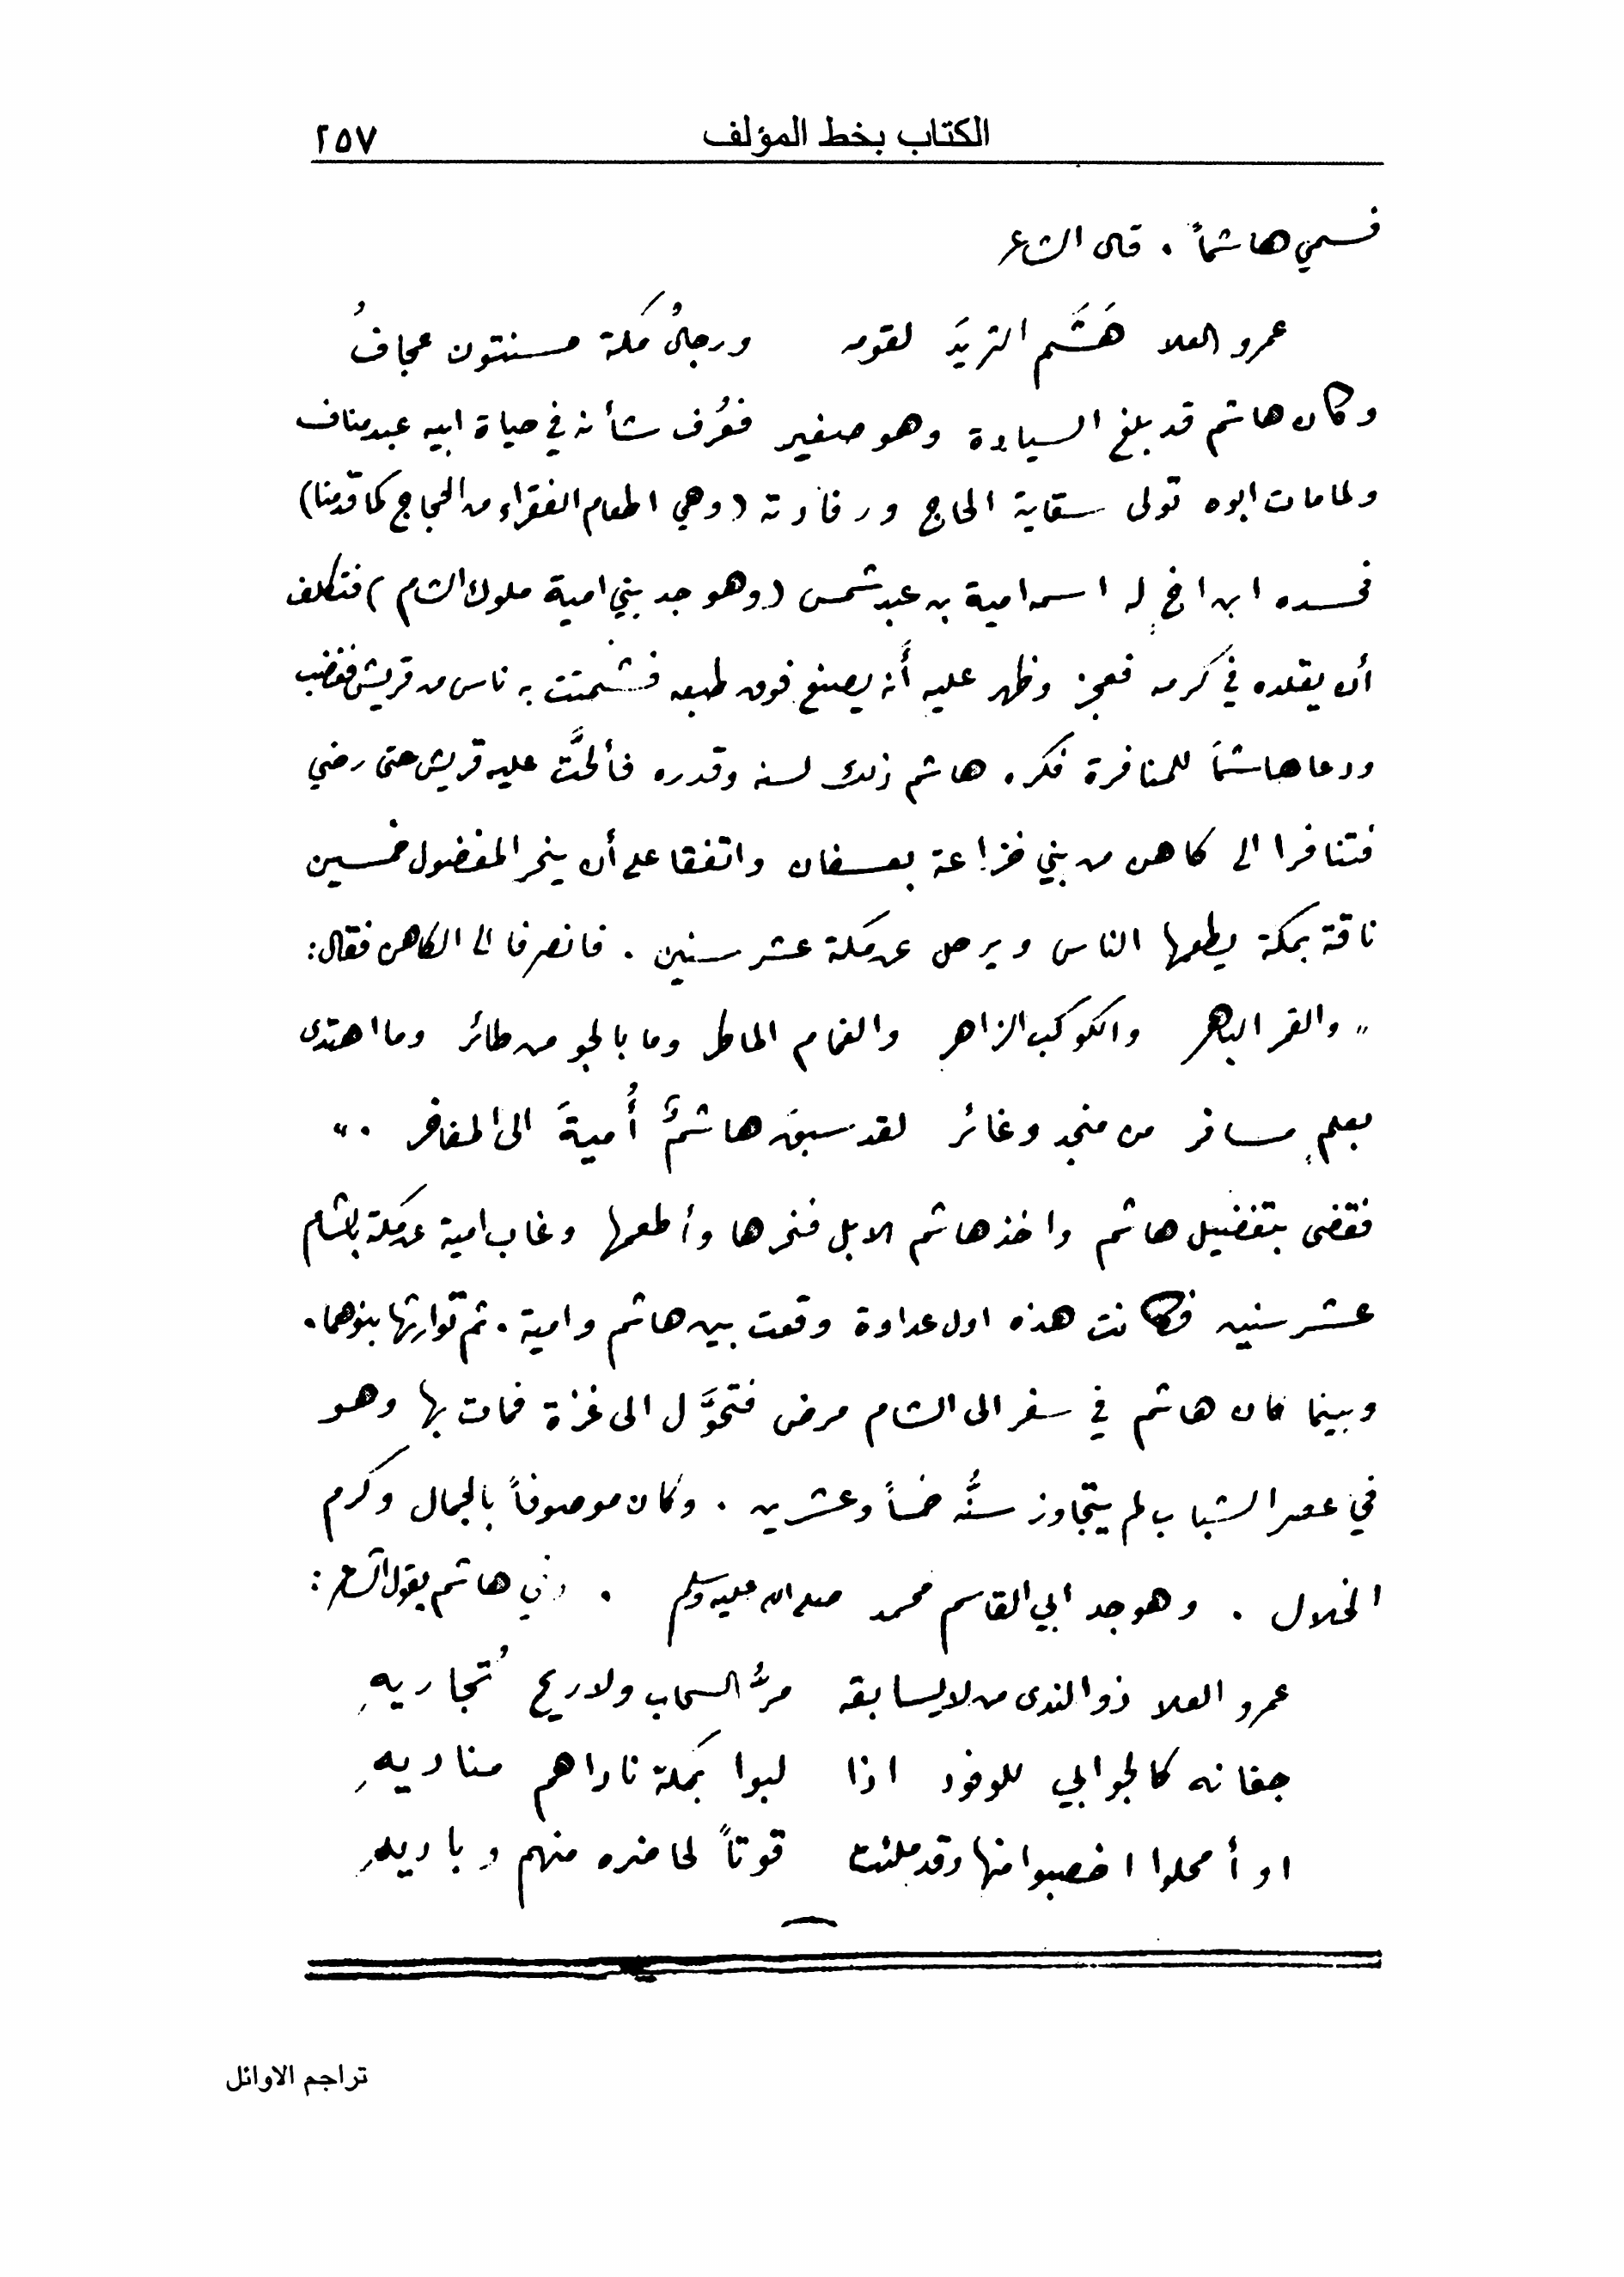 الكتاب بخط المؤلف ٢٥٧
فسمي هاشماً . قال الشاعر
عمرو العلا هَشَم الثريدَ لقومه ورجالُ مكة مسنتون عجافُ
وكان هاشم قد بلغ السيادة وهو صغير فعُرف شأنه في حياة ابيه عبد مناف
ولما مات ابوه تولى سقاية الحاج ورفادته (وهي اطعام الفقراء من الحجاج كما قدمنا)
فحسده ابن اخٍ له اسمه امية بن عبد شمس (وهو جد بني امية ملوك الشام) فتكلف
أن يقلده في كرمه فعجز وظهر عليه أنه يصنع فوق طبعه فشمتت به ناس من قريش فغضب
ودعا هاشماً للمنافرة فكره هاشم ذلك لسنه وقدره فألحَّت عليه قريش حتى رضي
فتنافرا الى كاهن من بني خزاعة بعسفان واتفقا على أن ينحر المفضول خمسين
ناقة بمكة يطعمها الناس ويرحل عن مكة عشر سنين . فانصرفا الى الكاهن فقال :
" والقمر الباهر والكوكب الزاهر والغمام الماطر وما بالجو من طائر وما اهتدى
بعلمٍ مسافر من منجد وغائر لقد سبق هاشمٌ أُميةَ الى المفاخر . "
فقضى بتفضيل هاشم واخذ هاشم الابل فنحرها وأطعمها وغاب امية عن مكة بالشام
عشر سنين فكانت هذه اول عداوة وقعت بين هاشم وامية . ثم توارثها بنوهما .
وبينما كان هاشم في سفر الى الشام مرض فتحوَّل الى غزة فمات بها وهو
في عصر الشباب لم يتجاوز سنُّه خمساً وعشرين . وكان موصوفاً بالجمال وكرم
الخلال . وهو جد ابي القاسم محمد صلى الله عليه وسلم . وفي هاشم يقول الشاعر :
عمرو العلا ذو الندى من لا يسابقه مرُّ السحاب ولا ريح تُجاريهِ
جفانه كالجوابي للوفود اذا لبوا بمكة ناداهم مناديهِ
او أمحلوا اخصبوا منها وقد ملئت قوتاً لحاضره منهم وباديهِ
تراجم الاوائل